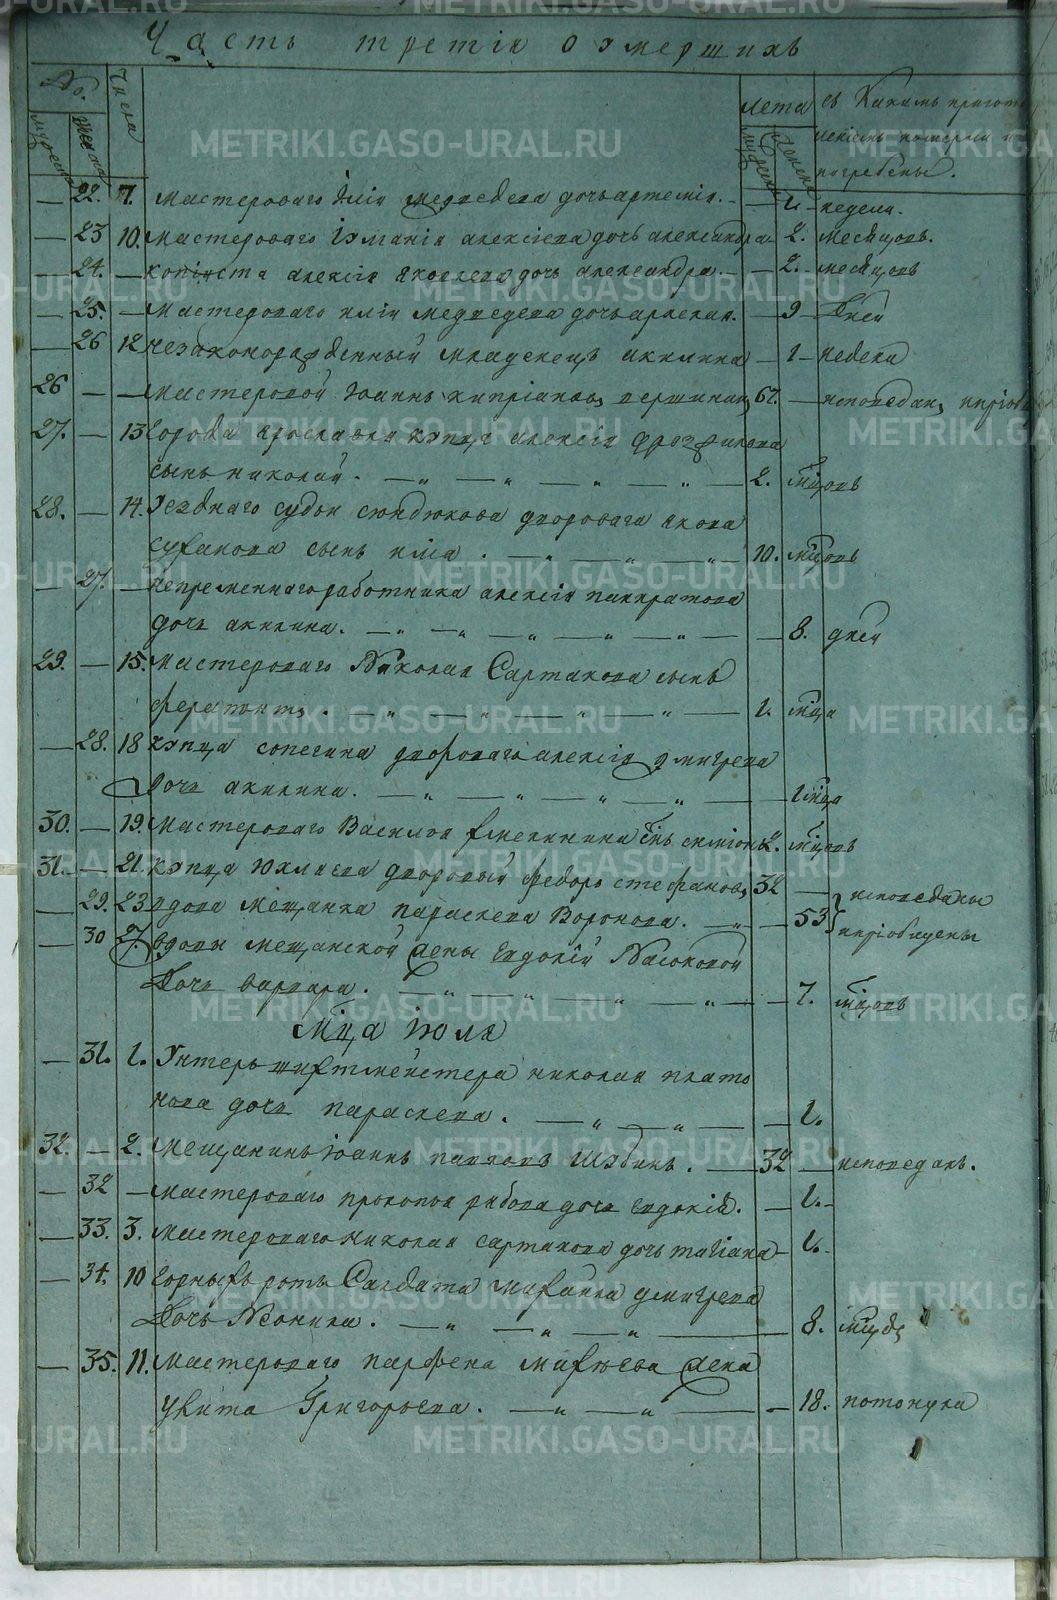 Часть третія о умершихъ
No. Числа лета съ Какимъ пригото
мужеска женска мужеска женска
погребены.
— 22. 7. мастероваго Иліи медведева дочь артемія. — — 1 — недели.
— 23 10. мастероваго алексіева дочь александра — 2. месяцовъ.
— 24. — копіиста алексія яковлева дочь александра. — — 2. — месяцовъ
— 25. — мастероваго иліи медведева дочь — 9 — дней
— 26 12 незаконорожденный младенецъ акилина — 1 — недели
26 — — мастеровой Іоаннъ кипріановъ вершининъ 67. — исповедан,
27. — 13 города ярославля купца алексія дрозжилова
сынъ николай. — „ — „ — „ — „ — 2. мцовъ
28. — 14. Уезднаго судьи сюндюкова двороваго якова
суханова сынъ иліа. — „ — „ — 10. мцовъ
— 27. — непременнаго работника алексія панкратова
дочь акилина. — „ — „ — „ — „ — „ — — 8. дней
29. — 15. мастероваго Николая Сартакова сынъ
ферапонтъ. — „ — „ — „ — „ — 1. мца
— 28. 18 купца сопегина двороваго алексія дмитрева
дочь акилина. — „ — „ — „ — — 1 мца
30. — 19. мастероваго Василья Емельянина снъ симіонъ 2. мцовъ
31. — 21. купца дворовый федоръ стефановъ 32 — исповеданы
— 29. 23 вдова мещанка параскева Воронова. — „ — — 53 и пріобщены
— 30 27 вдовы мещанской жены Евдокіи
дочь варвара. — „ — „ — „ — „ — — 7. мцовъ
Мца іюля
— 31. 1. Унтеръ шихтмейстера николая плато
нова дочь параскева. — „ — „ — — 1.
32. — 2. мещанинъ іоаннъ павловъ Шубинъ. — 32 — исповеданъ.
— 32 — мастероваго прокопья рябова дочь евдокія. — 1. —
— 33. 3. мастероваго николая сартакова дочь татіана — 1. —
— 34. 10 горныхъ ротъ Салдата михайла дмитрева
дочь Неонила. — „ — „ — „ — 8. мцовъ
— 35. 11. мастероваго парфена жена
улита Григорьева. — „ — „ — — 18. потонула
METRIKI.GASO-URAL.RU